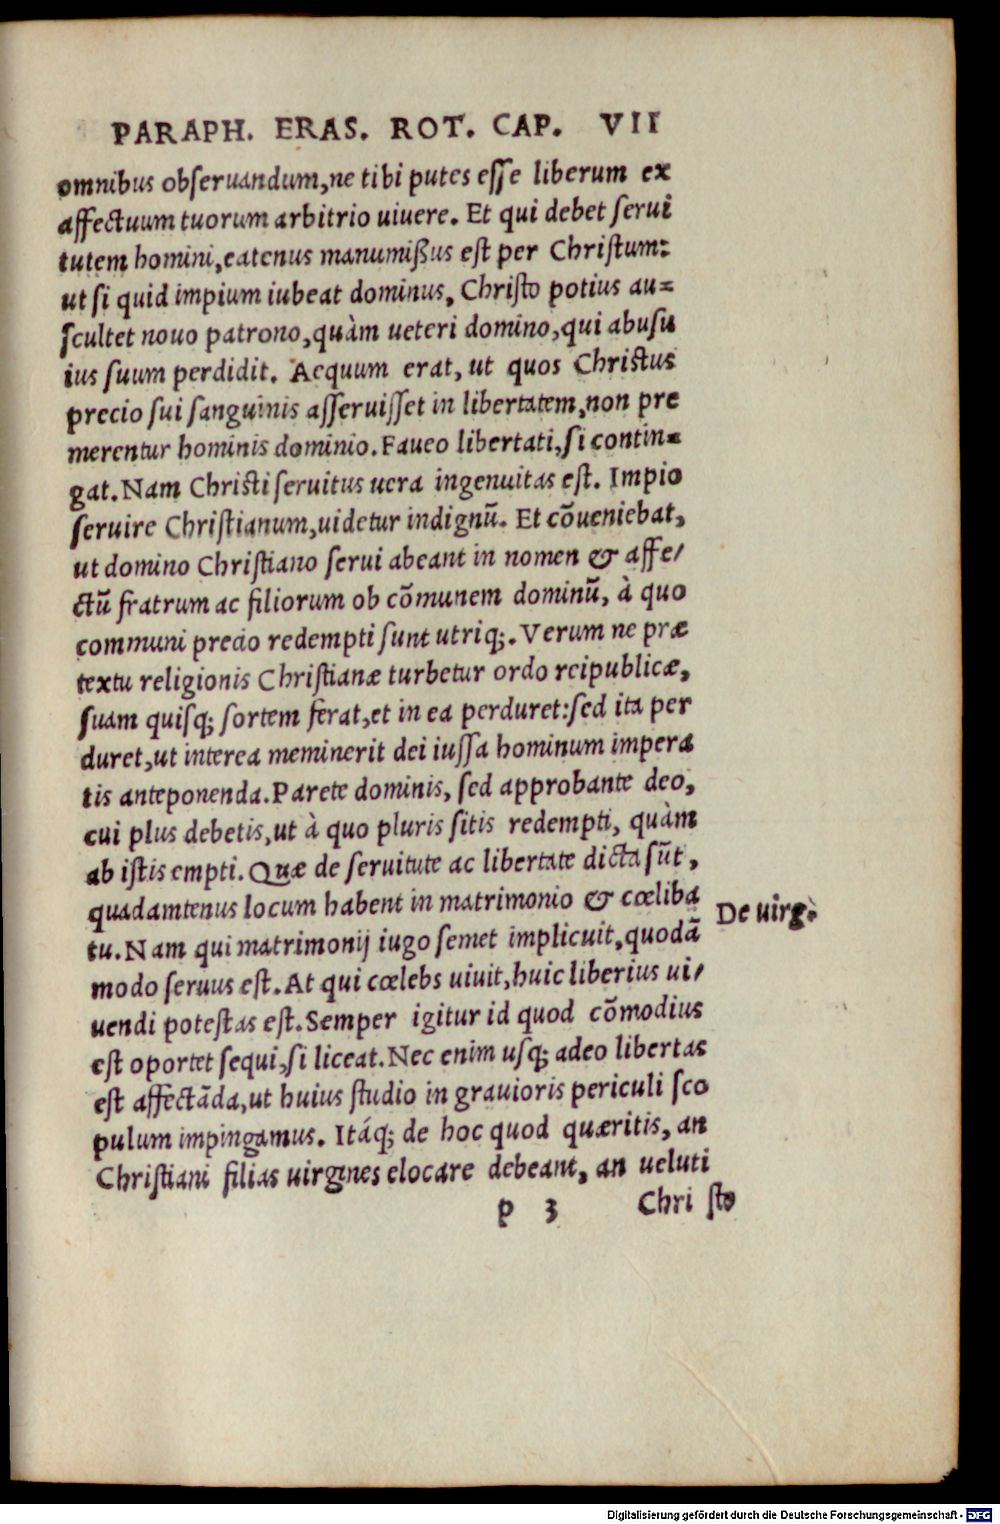 PARAPH. ERAS. ROT. CAP. VII
omnibus obſeruandum, ne tibi putes eſſe liberum ex
affectuum tuorum arbitrio uiuere. Et qui debet ſerui
tutem homini, eatenus manumißus eſt per Chriſtum:
ut ſi quid impium iubeat dominus, Chriſto potius au=
ſcultet nouo patrono, quàm ueteri domino, qui abuſu
ius ſuum perdidit. Aequum erat, ut quos Chriſtus
precio ſui ſanguinis aſſeruiſſet in libertatem, non pre
merentur hominis dominio. Faueo libertati, ſi contin=
gat. Nam Chriſti ſeruitus uera ingenuitas eſt. Impio
ſeruire Chriſtianum, uidetur indignũ. Et cõueniebat,
ut domino Chriſtiano ſerui abeant in nomen & affe/
ctũ fratrum ac filiorum ob cõmunem dominũ, à quo
communi precio redempti ſunt utriq;. Verum ne præ
textu religionis Chriſtianæ turbetur ordo reipublicæ,
ſuam quiſq; ſortem ferat, et in ea perduret: ſed ita per
duret, ut interea meminerit dei iuſſa hominum impera
tis anteponenda. Parete dominis, ſed approbante deo,
cui plus debetis, ut à quo pluris ſitis redempti, quàm
ab iſtis empti. Quæ de ſeruitute ac libertate dicta ſũt,
quadamtenus locum habent in matrimonio & cœliba
tu. Nam qui matrimonij iugo ſemet implicuit, quodã
modo ſeruus eſt. At qui cœlebs uiuit, huic liberius ui/
uendi poteſtas eſt. Semper igitur id quod cõmodius
eſt oportet ſequi, ſi liceat. Nec enim uſq; adeo libertas
eſt affectãda, ut huius ſtudio in grauioris periculi ſco
pulum impingamus. Itáq; de hoc quod quæritis, an
Chriſtiani filias uirgines elocare debeant, an ueluti
De uirg.
p 3 Chri ſto
Digitalisierung gefördert durch die Deutsche Forschungsgemeinschaft - DFG